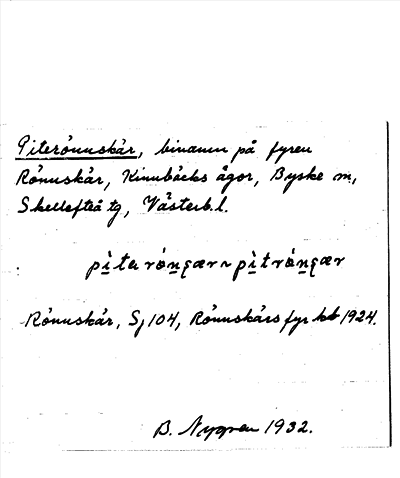 Piterönnskär, binamn på fyren
Rönnskär, Kinnbäcks ägor, Byske sn,
Skellefteå tg, Västerb. l.
pìterönşær ~ pìtrönşær
Rönnskär, Sj 104, Rönnskärs fyr kb 1924.
B. Nygren 1932.